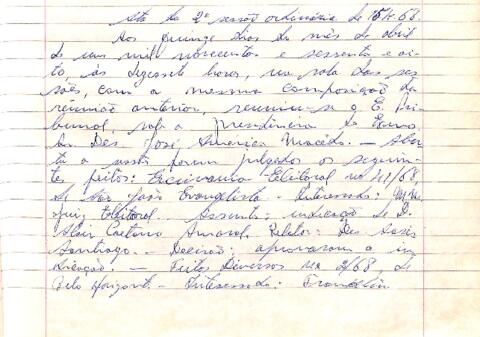 Ata da 2ª sessão ordinária de 15/4/68.
Aos quinze dias do mês de abril
de um mil novecentos e sessenta e oi-
to, às dezessete horas, na sala das ses-
sões, com a mesma composição da
reunião anterior, reuniu-se o E. Tri-
bunal, sob a presidência do Exmo
Sr. Des. José Américo Macêdo. — Aber-
ta a sessão foram julgados os seguin-
tes feitos: Escrivania Eleitoral nº 41/68,
de São João Evangelista. - Interessado:
Eleitoral. - Assunto: indicação de D.
Caetano Amaral. Relator: Des. Assis
Santiago. - Decisão: aprovaram a in-
dicação. — Feitos Diversos nº 2/68, de
Belo Horizonte. - Interessado: Franklin